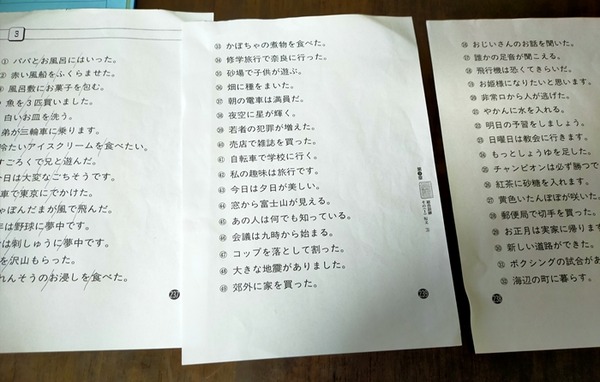 3
① パパとお風呂にはいった。
② 赤い風船をふくらませた。
風呂敷にお菓子を包む。
魚を3匹買いました。
白いお皿を洗う。
弟が三輪車に乗ります。
冷たいアイスクリームを食べたい。
すごろくで兄と遊んだ。
今日は大変なごちそうです。
車で東京にでかけた。
しゃぼんだまが風で飛んだ。
は野球に夢中です。
は刺しゅうに夢中です。
を沢山もらった。
れんそうのお浸しを食べた。
237
㉝ かぼちゃの煮物を食べた。
㉞ 修学旅行で奈良に行った。
㉟ 砂場で子供が遊ぶ。
㊱ 畑に種をまいた。
㊲ 朝の電車は満員だ。
㊳ 夜空に星が輝く。
㊴ 若者の犯罪が増えた。
㊵ 売店で雑誌を買った。
㊶ 自転車で学校に行く。
㊷ 私の趣味は旅行です。
㊸ 今日は夕日が美しい。
㊹ 窓から富士山が見える。
㊺ あの人は何でも知っている。
㊻ 会議は九時から始まる。
㊼ コップを落として割った。
㊽ 大きな地震がありました。
㊾ 郊外に家を買った。
239
⑯ おじいさんのお話を聞いた。
⑰ 誰かの足音が聞こえる。
⑱ 飛行機は恐くてきらいだ。
⑲ お姫様になりたいと思います。
⑳ 非常口から人が逃げた。
㉑ やかんに水を入れる。
㉒ 明日の予習をしましょう。
㉓ 日曜日は教会に行きます。
㉔ もっとしょうゆを足した。
㉕ チャンピオンは必ず勝つで
㉖ 紅茶に砂糖を入れます。
㉗ 黄色いたんぽぽが咲いた。
㉘ 郵便局で切手を買った。
㉙ お正月は実家に帰ります
㉚ 新しい道路ができた。
㉛ ボクシングの試合があ
㉜ 海辺の町に暮らす。
238